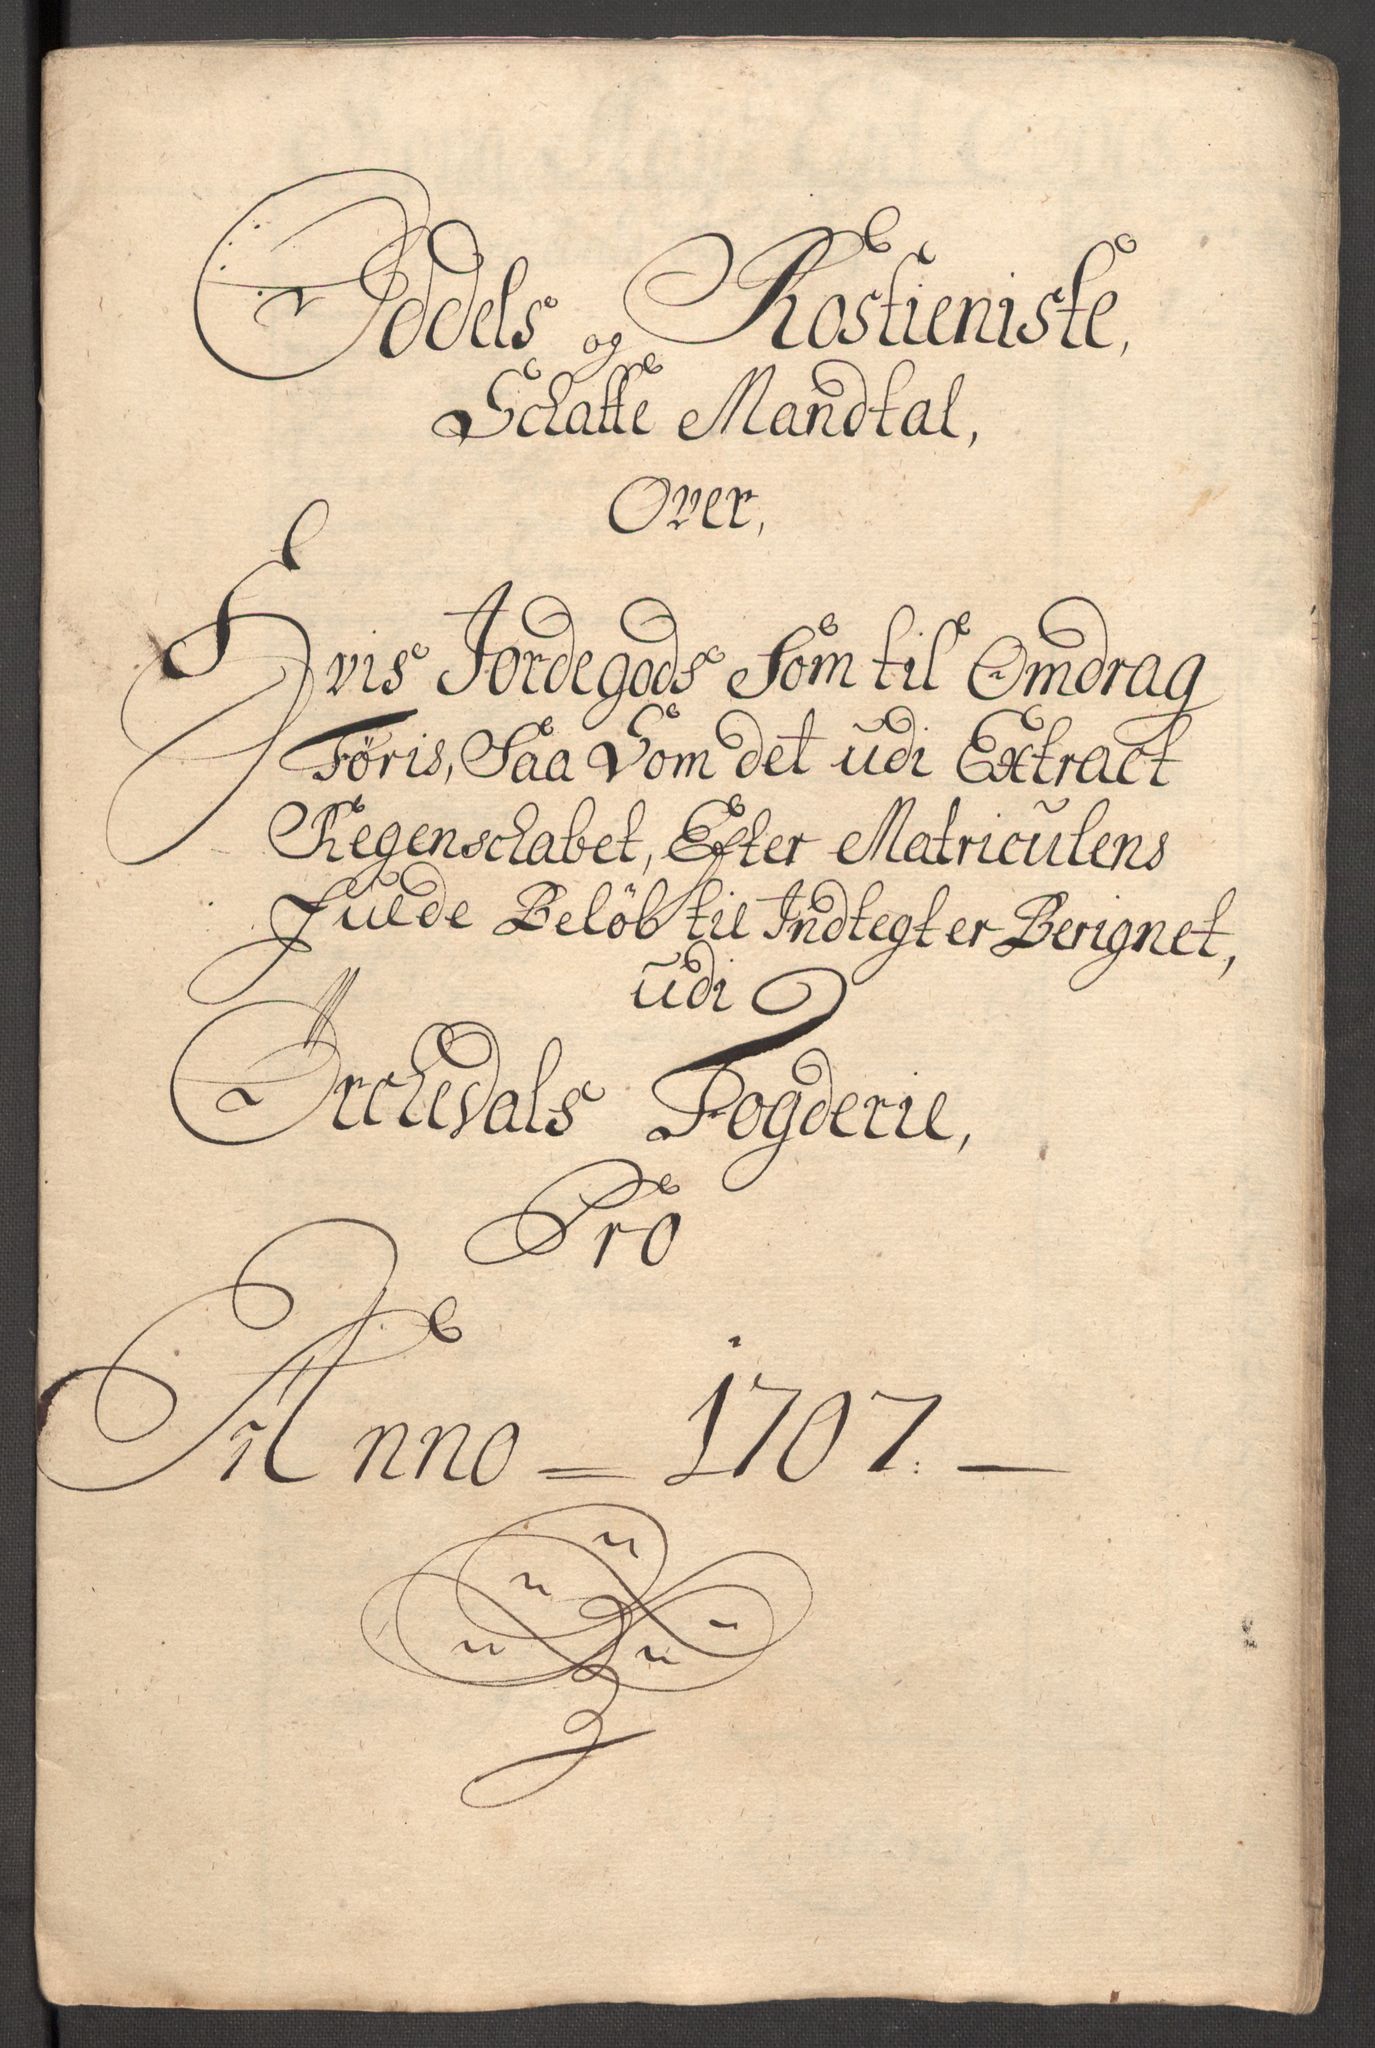 Oddels og Rostieniste,
Schatte Mandtal,
Over,
Hvis Jordegods Som til Omdrag
Føris, Saa Som det udi Extract
Regenschabet, Efter Matriculens
Fulde Beløb til Indtegt er Berignet,
udi
Orchedals Fogderie,
Pro
Anno = 1707. —